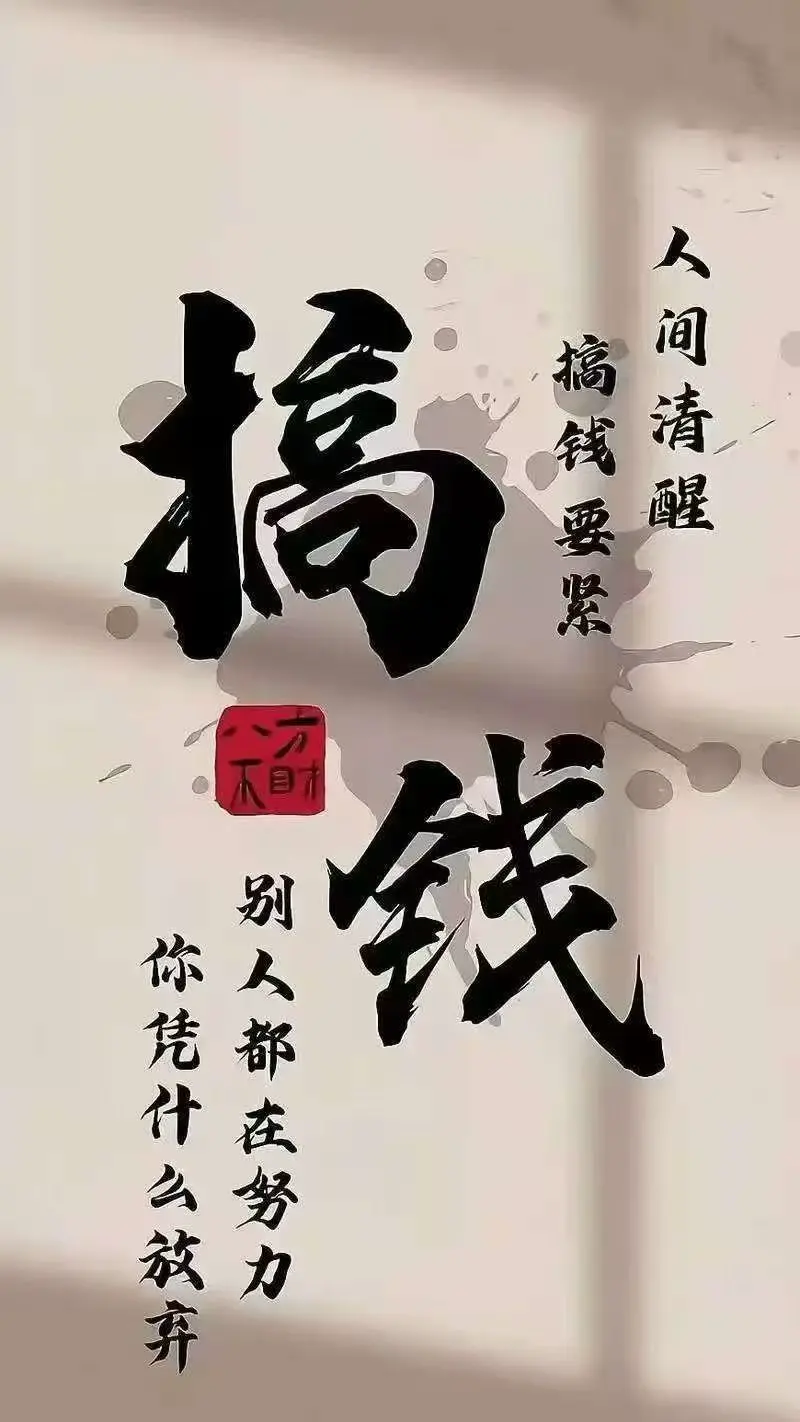 人间清醒
搞钱要紧
搞钱
八方
不财
别人都在努力
你凭什么放弃